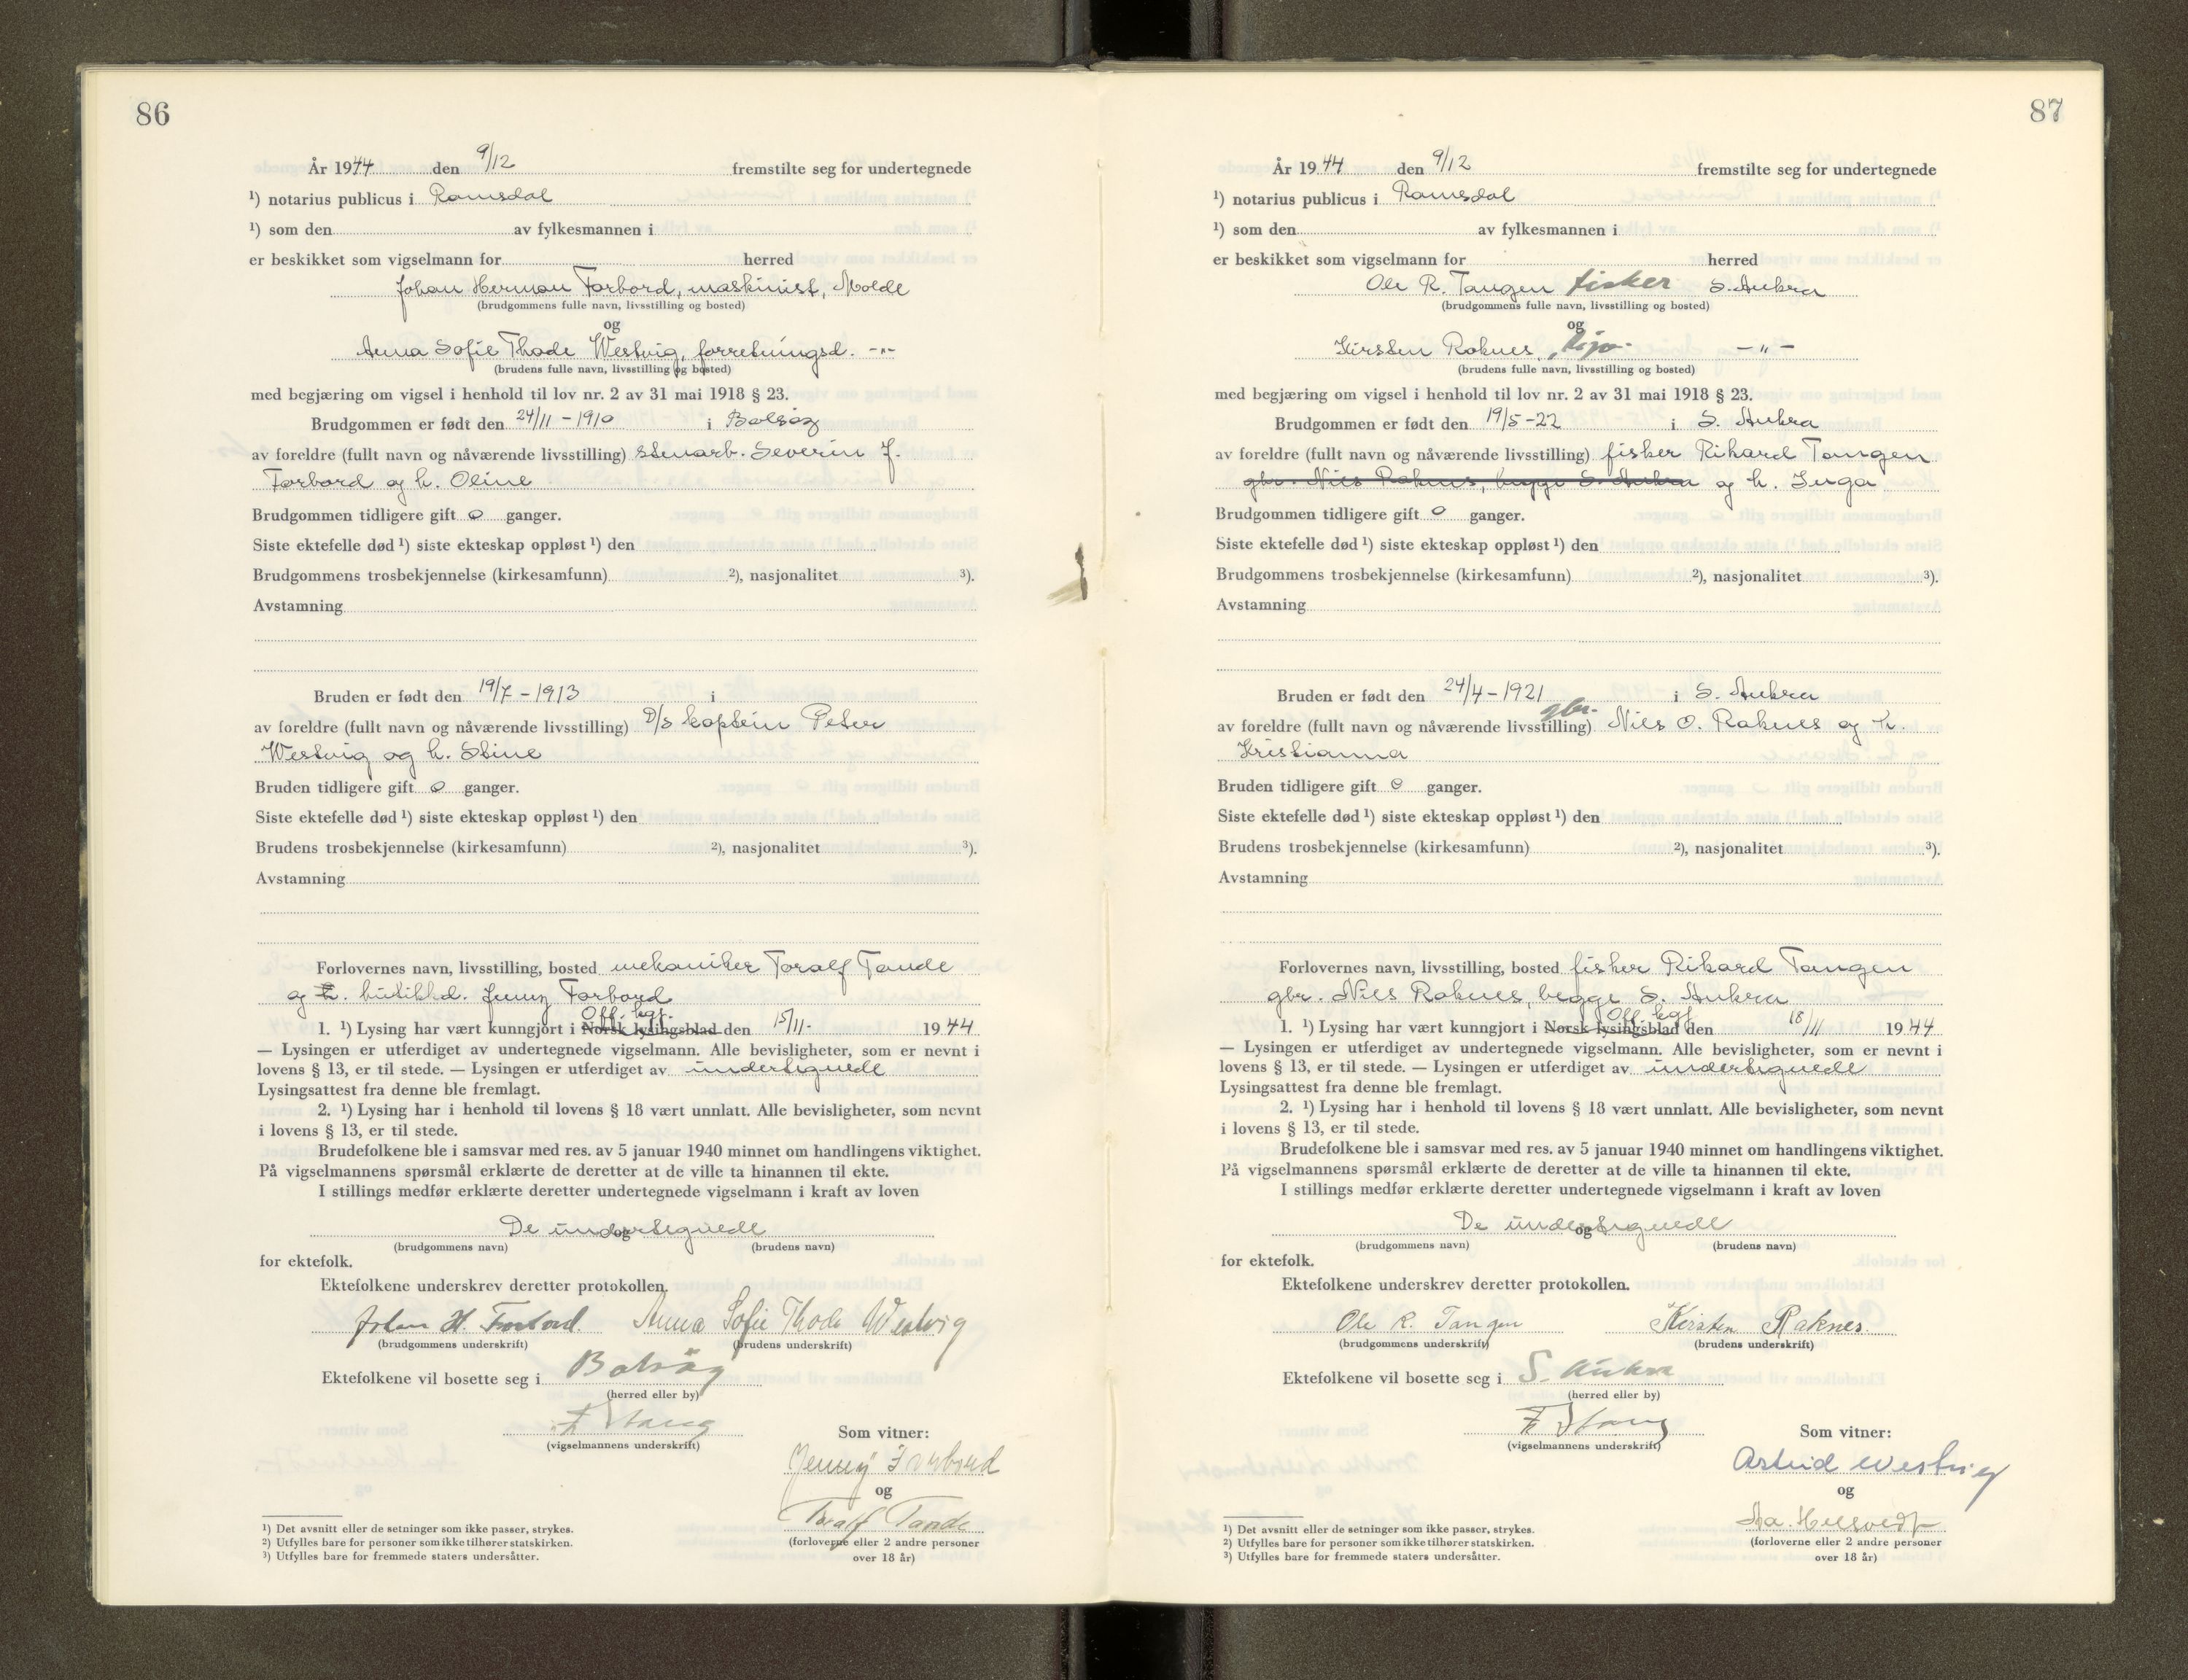 86
År 1944 den 9/12 fremstilte seg for undertegnede
¹) notarius publicus i Romsdal
¹) som den av fylkesmannen i
er beskikket som vigselmann for herred
Johan Herman Forbord, maskinist, Molde
(brudgommens fulle navn, livsstilling og bosted)
og
Anna Sofie Thode Westvig, forretningsd. -"-
(brudens fulle navn, livsstilling og bosted)
med begjæring om vigsel i henhold til lov nr. 2 av 31 mai 1918 § 23.
Brudgommen er født den 24/11 - 1910 i Bolsøy
av foreldre (fullt navn og nåværende livsstilling) stenarb. Severin J.
Forbord og h. Oline
Brudgommen tidligere gift 0 ganger.
Siste ektefelle død ¹) siste ekteskap oppløst ¹) den
Brudgommens trosbekjennelse (kirkesamfunn) ²), nasjonalitet ³).
Avstamning
Bruden er født den 19/7 - 1913 i
av foreldre (fullt navn og nåværende livsstilling) D/s kaptein Peter
Westvig og h. Stine
Bruden tidligere gift 0 ganger.
Siste ektefelle død ¹) siste ekteskap oppløst ¹) den
Brudens trosbekjennelse (kirkesamfunn) ²), nasjonalitet ³).
Avstamning
Forlovernes navn, livsstilling, bosted mekaniker Toralf Tande
og h. butikkd. Jenny Forbord
Off. kgj.
1. ¹) Lysing har vært kunngjort i Norsk lysingsblad den 15/11. 1944
— Lysingen er utferdiget av undertegnede vigselmann. Alle bevisligheter, som er nevnt i
lovens § 13, er til stede. — Lysingen er utferdiget av undertegnede
Lysingsattest fra denne ble fremlagt.
2. ¹) Lysing har i henhold til lovens § 18 vært unnlatt. Alle bevisligheter, som nevnt
i lovens § 13, er til stede.
Brudefolkene ble i samsvar med res. av 5 januar 1940 minnet om handlingens viktighet.
På vigselmannens spørsmål erklærte de deretter at de ville ta hinannen til ekte.
I stillings medfør erklærte deretter undertegnede vigselmann i kraft av loven
De undertegnede
og
(brudgommens navn) (brudens navn)
for ektefolk.
Ektefolkene underskrev deretter protokollen.
Johan H. Forbord. Anna Sofie Thode Westvig
(brudgommens underskrift) (brudens underskrift)
Ektefolkene vil bosette seg i Bolsøy
(herred eller by)
F Stang
(vigselmannens underskrift)
Som vitner:
Jenny Forbord
og
Toralf Tande
(forloverne eller 2 andre personer
over 18 år)
¹) Det avsnitt eller de setninger som ikke passer, strykes.
²) Utfylles bare for personer som ikke tilhører statskirken.
³) Utfylles bare for fremmede staters undersåtter.
87
År 1944 den 9/12 fremstilte seg for undertegnede
¹) notarius publicus i Romsdal
¹) som den av fylkesmannen i
er beskikket som vigselmann for herred
Ole R. Tangen fisker S. Aukra
(brudgommens fulle navn, livsstilling og bosted)
og
Kirsten Raknes, -"-
(brudens fulle navn, livsstilling og bosted)
med begjæring om vigsel i henhold til lov nr. 2 av 31 mai 1918 § 23.
Brudgommen er født den 19/5-22 i S. Aukra
av foreldre (fullt navn og nåværende livsstilling) fisker Rikard Tangen
gbr. Nils Raknes, begge S. Aukra og h. Inga
Brudgommen tidligere gift 0 ganger.
Siste ektefelle død ¹) siste ekteskap oppløst ¹) den
Brudgommens trosbekjennelse (kirkesamfunn) ²), nasjonalitet ³).
Avstamning
Bruden er født den 24/4 - 1921 i S. Aukra
gbr.
av foreldre (fullt navn og nåværende livsstilling) Nils O. Raknes og h.
Kristianna
Bruden tidligere gift 0 ganger.
Siste ektefelle død ¹) siste ekteskap oppløst ¹) den
Brudens trosbekjennelse (kirkesamfunn) ²), nasjonalitet ³).
Avstamning
Forlovernes navn, livsstilling, bosted fisker Rikard Tangen
gbr. Nils Raknes, begge S. Aukra
Off. kgj.
1. ¹) Lysing har vært kunngjort i Norsk lysingsblad den 18/11 1944
— Lysingen er utferdiget av undertegnede vigselmann. Alle bevisligheter, som er nevnt i
lovens § 13, er til stede. — Lysingen er utferdiget av undertegnede
Lysingsattest fra denne ble fremlagt.
2. ¹) Lysing har i henhold til lovens § 18 vært unnlatt. Alle bevisligheter, som nevnt
i lovens § 13, er til stede.
Brudefolkene ble i samsvar med res. av 5 januar 1940 minnet om handlingens viktighet.
På vigselmannens spørsmål erklærte de deretter at de ville ta hinannen til ekte.
I stillings medfør erklærte deretter undertegnede vigselmann i kraft av loven
De undertegnede
og
(brudgommens navn) (brudens navn)
for ektefolk.
Ektefolkene underskrev deretter protokollen.
Ole R. Tangen Kirsten Raknes.
(brudgommens underskrift) (brudens underskrift)
Ektefolkene vil bosette seg i S. Aukra
(herred eller by)
F Stang
(vigselmannens underskrift)
Som vitner:
Astrid Westvig
og
Aa.
(forloverne eller 2 andre personer
over 18 år)
¹) Det avsnitt eller de setninger som ikke passer, strykes.
²) Utfylles bare for personer som ikke tilhører statskirken.
³) Utfylles bare for fremmede staters undersåtter.